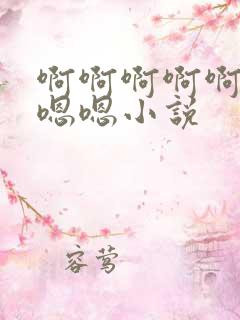 啊啊啊啊啊
嗯嗯小说
容莺